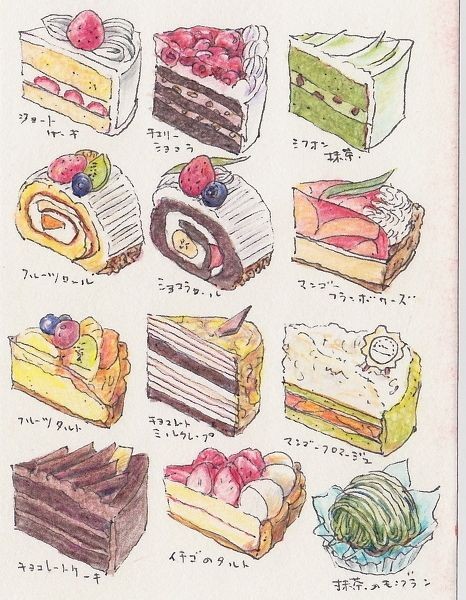 ショート
ケーキ
チェリー
ショコラ
シフォン
抹茶.
フルーツロール
ショコラロール
マンゴー
フランボワーズ
フルーツタルト
チョコレート
ミルクレープ
マンゴーフロマージュ
チョコレートケーキ
イチゴのタルト
抹茶.のモンブラン